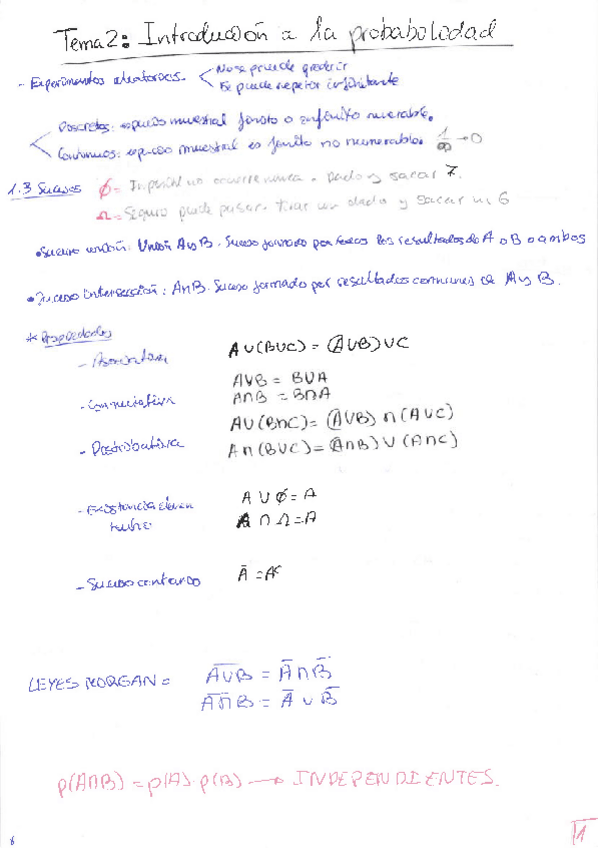 Tema 2: Introducción a la probabolodad
- Experimentos aleatorios. No se pruede predecir
Se puede repetir infinitante
Discretos: espacio muestral finito o infinito numerable.
Continuos: espacio muestral es finito no numerable. 1/∞ → 0
1.3 Sucesos ∅ = Imposible no ocurre nunca. Dado y sacar 7.
Ω = Seguro puede pasar. tirar un dado y sacar 6
• Suceso unión: Unión A y B. Suceso formado por todos los resultados de A o B o ambos
• Suceso intersección: A∩B. Suceso formado por resultados comunes de A y B.
* Propiedades
- Asociativa A∪(B∪C) = (A∪B)∪C
A∪B = B∪A
- Conmutativa A∩B = B∩A
A∪(B∩C) = (A∪B)∩(A∪C)
- Distributiva A∩(B∪C) = (A∩B)∪(A∩C)
- Existencia elemen A∪∅ = A
A∩Ω = A
- Suceso contrario Ā = Aᶜ
LEYES MORGAN = A̅∪̅B̅ = Ā∩B̅
A̅∩̅B̅ = Ā∪B̅
p(A∩B) = p(A)·p(B) → INDEPENDIENTES.
1